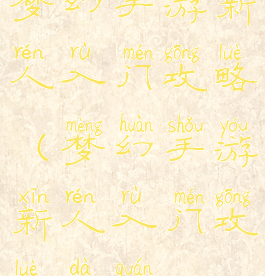 梦幻手游新
rén rù mén gōng lüè
人入门攻略
mèng huàn shǒu yóu
（梦幻手游
xīn rén rù mén gōng
新人入门攻
lüè dà quán